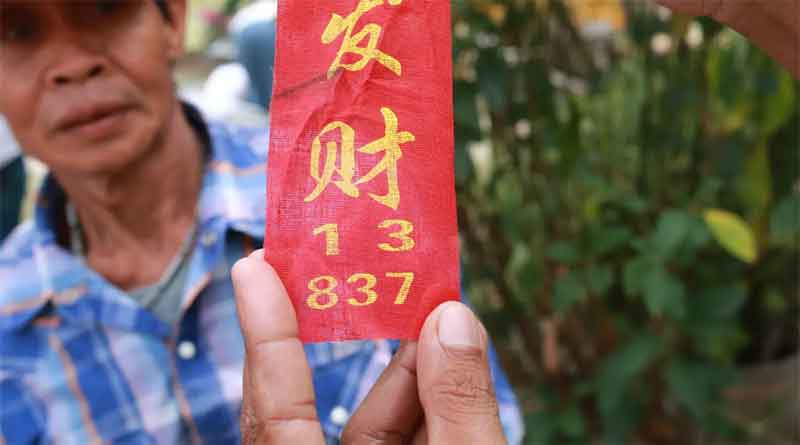 发
财
1 3
837